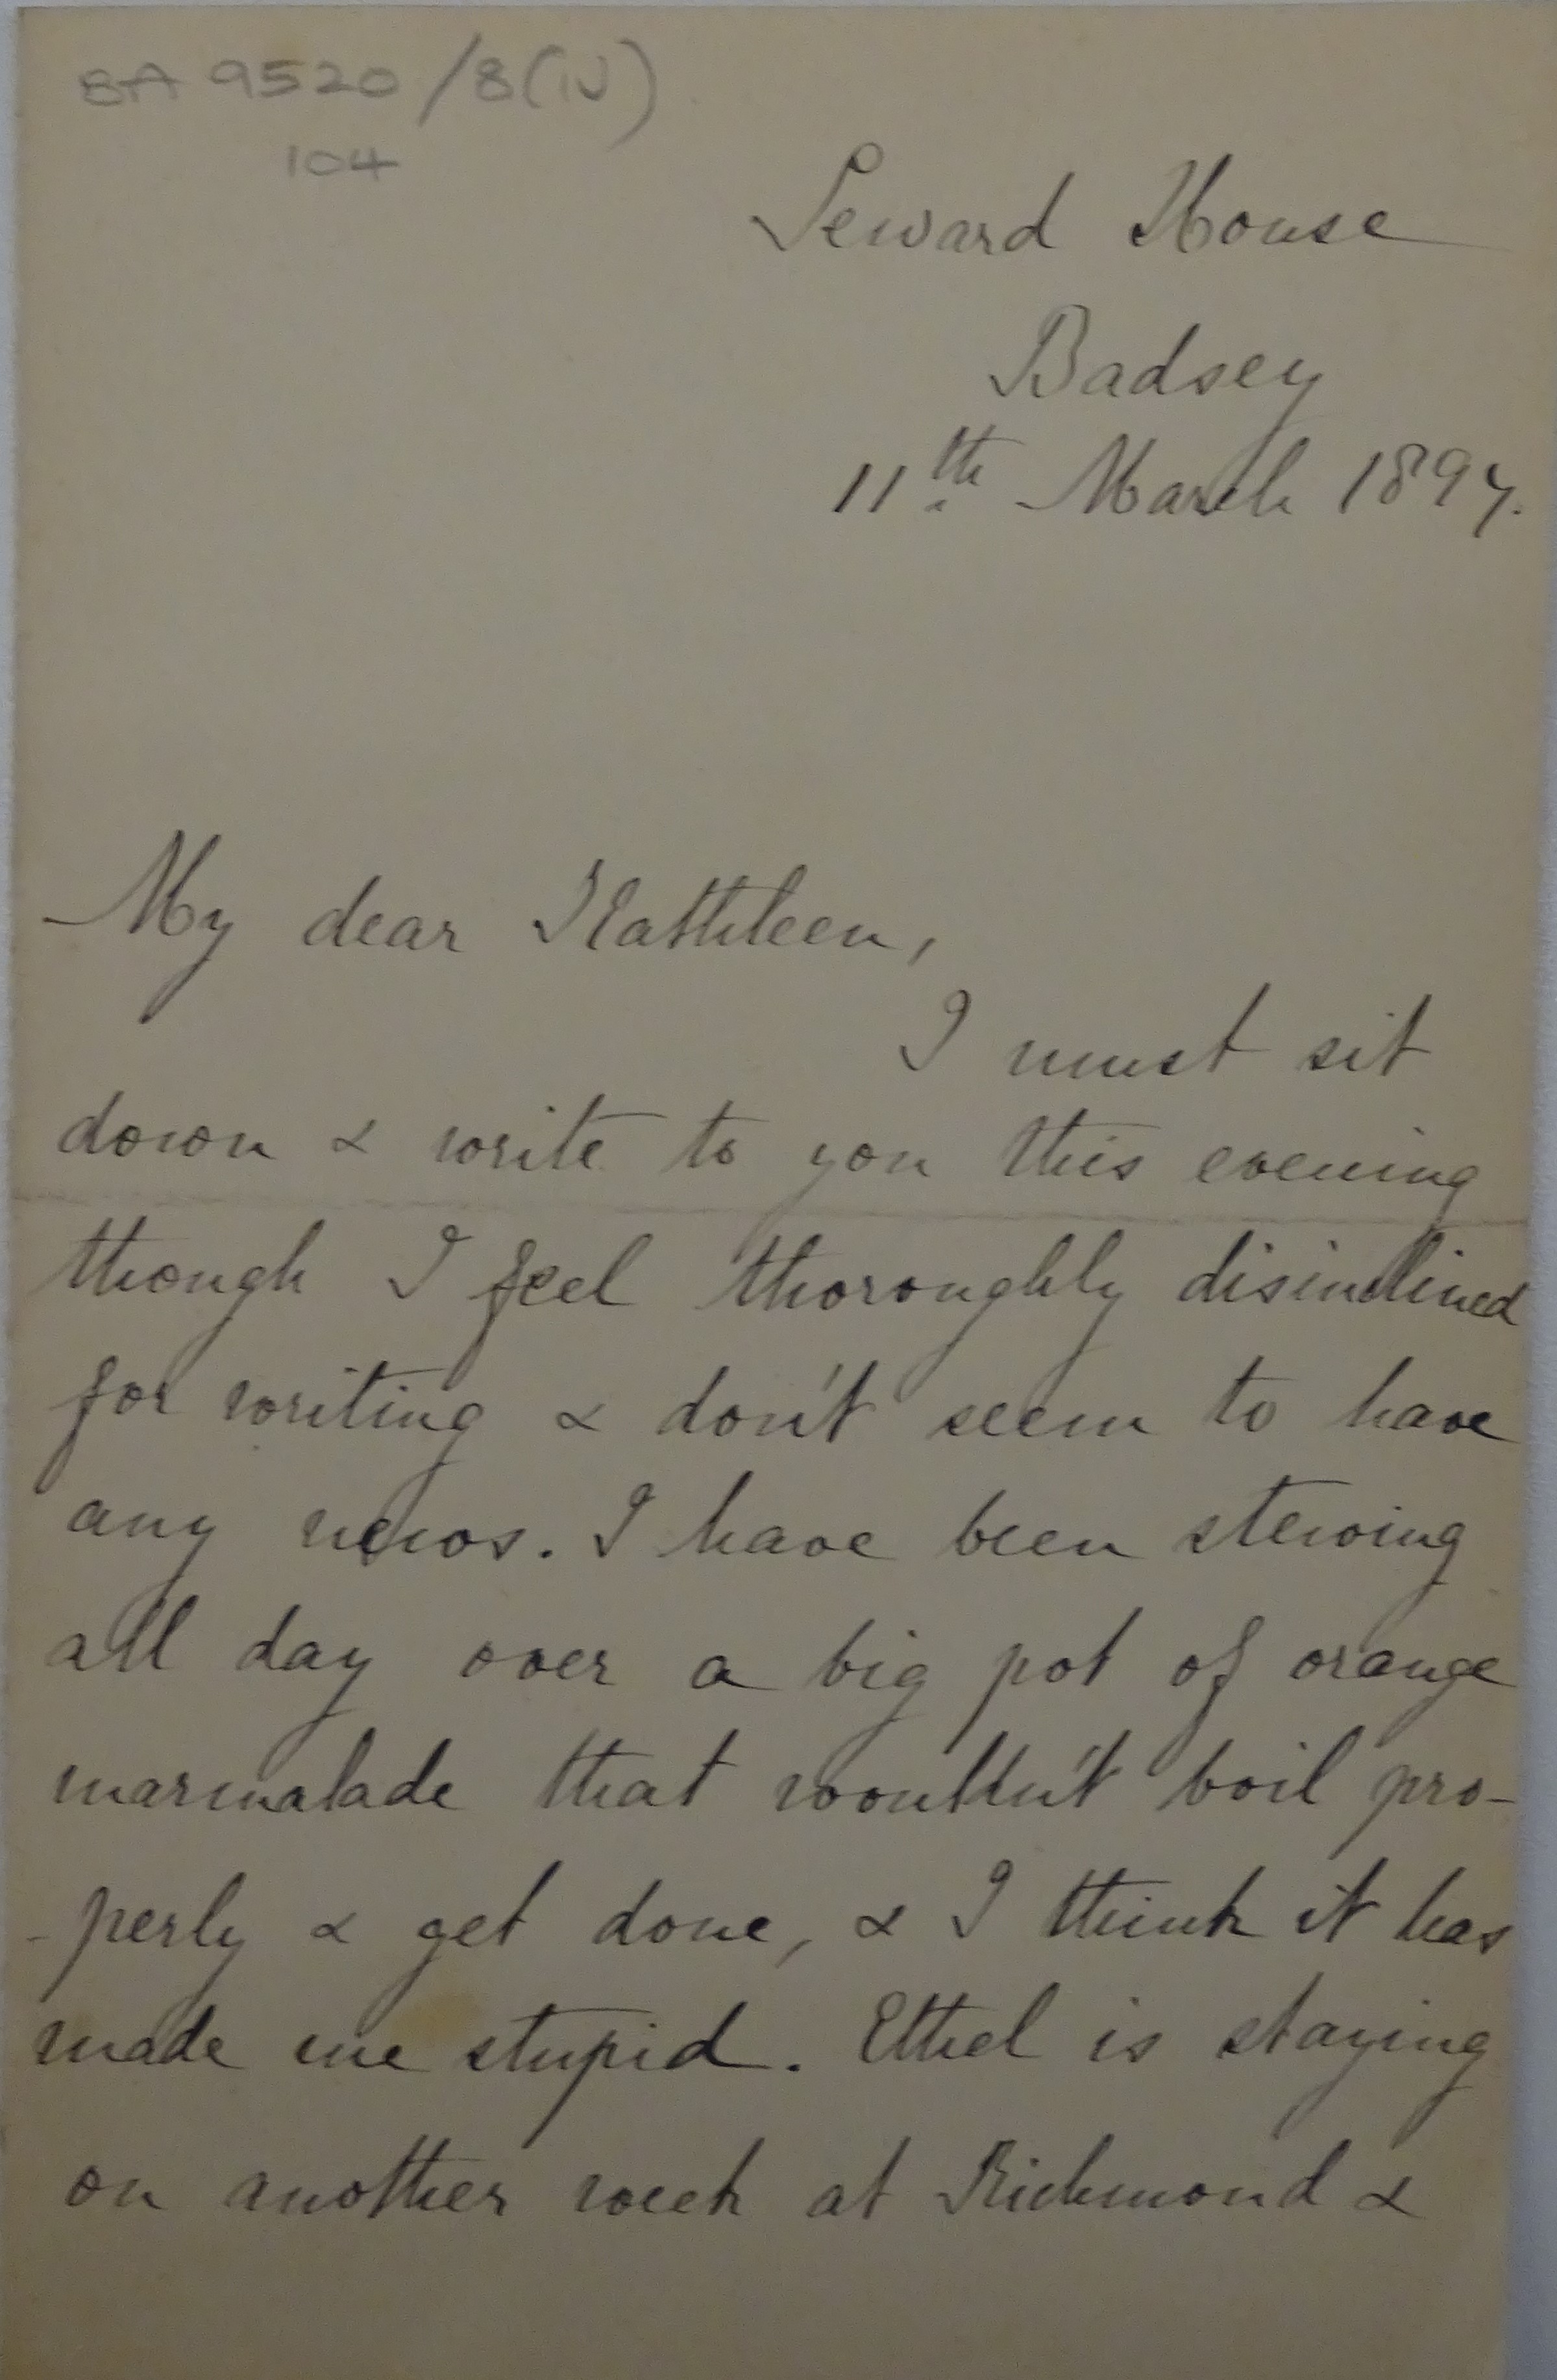 BA 9520/8(iv)
104
Seward House
Badsey
11th March 1897.
My dear Kathleen,
I must sit
down & write to you this evening
though I feel thoroughly disinclined
for writing & don't seem to have
any news. I have been stewing
all day over a big pot of orange
marmalade that wouldn't boil pro-
-perly & get done, & I think it has
made me stupid. Ethel is staying
on another week at Richmond &